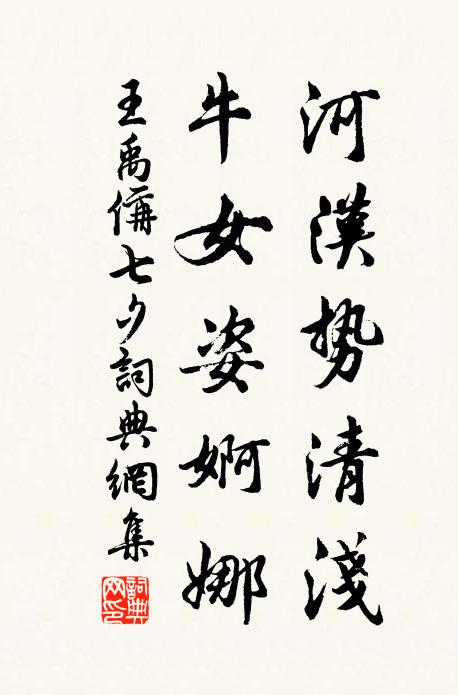 河漢勢清淺
牛女姿婀娜
王禹偁七夕詞典網集
詞典網印